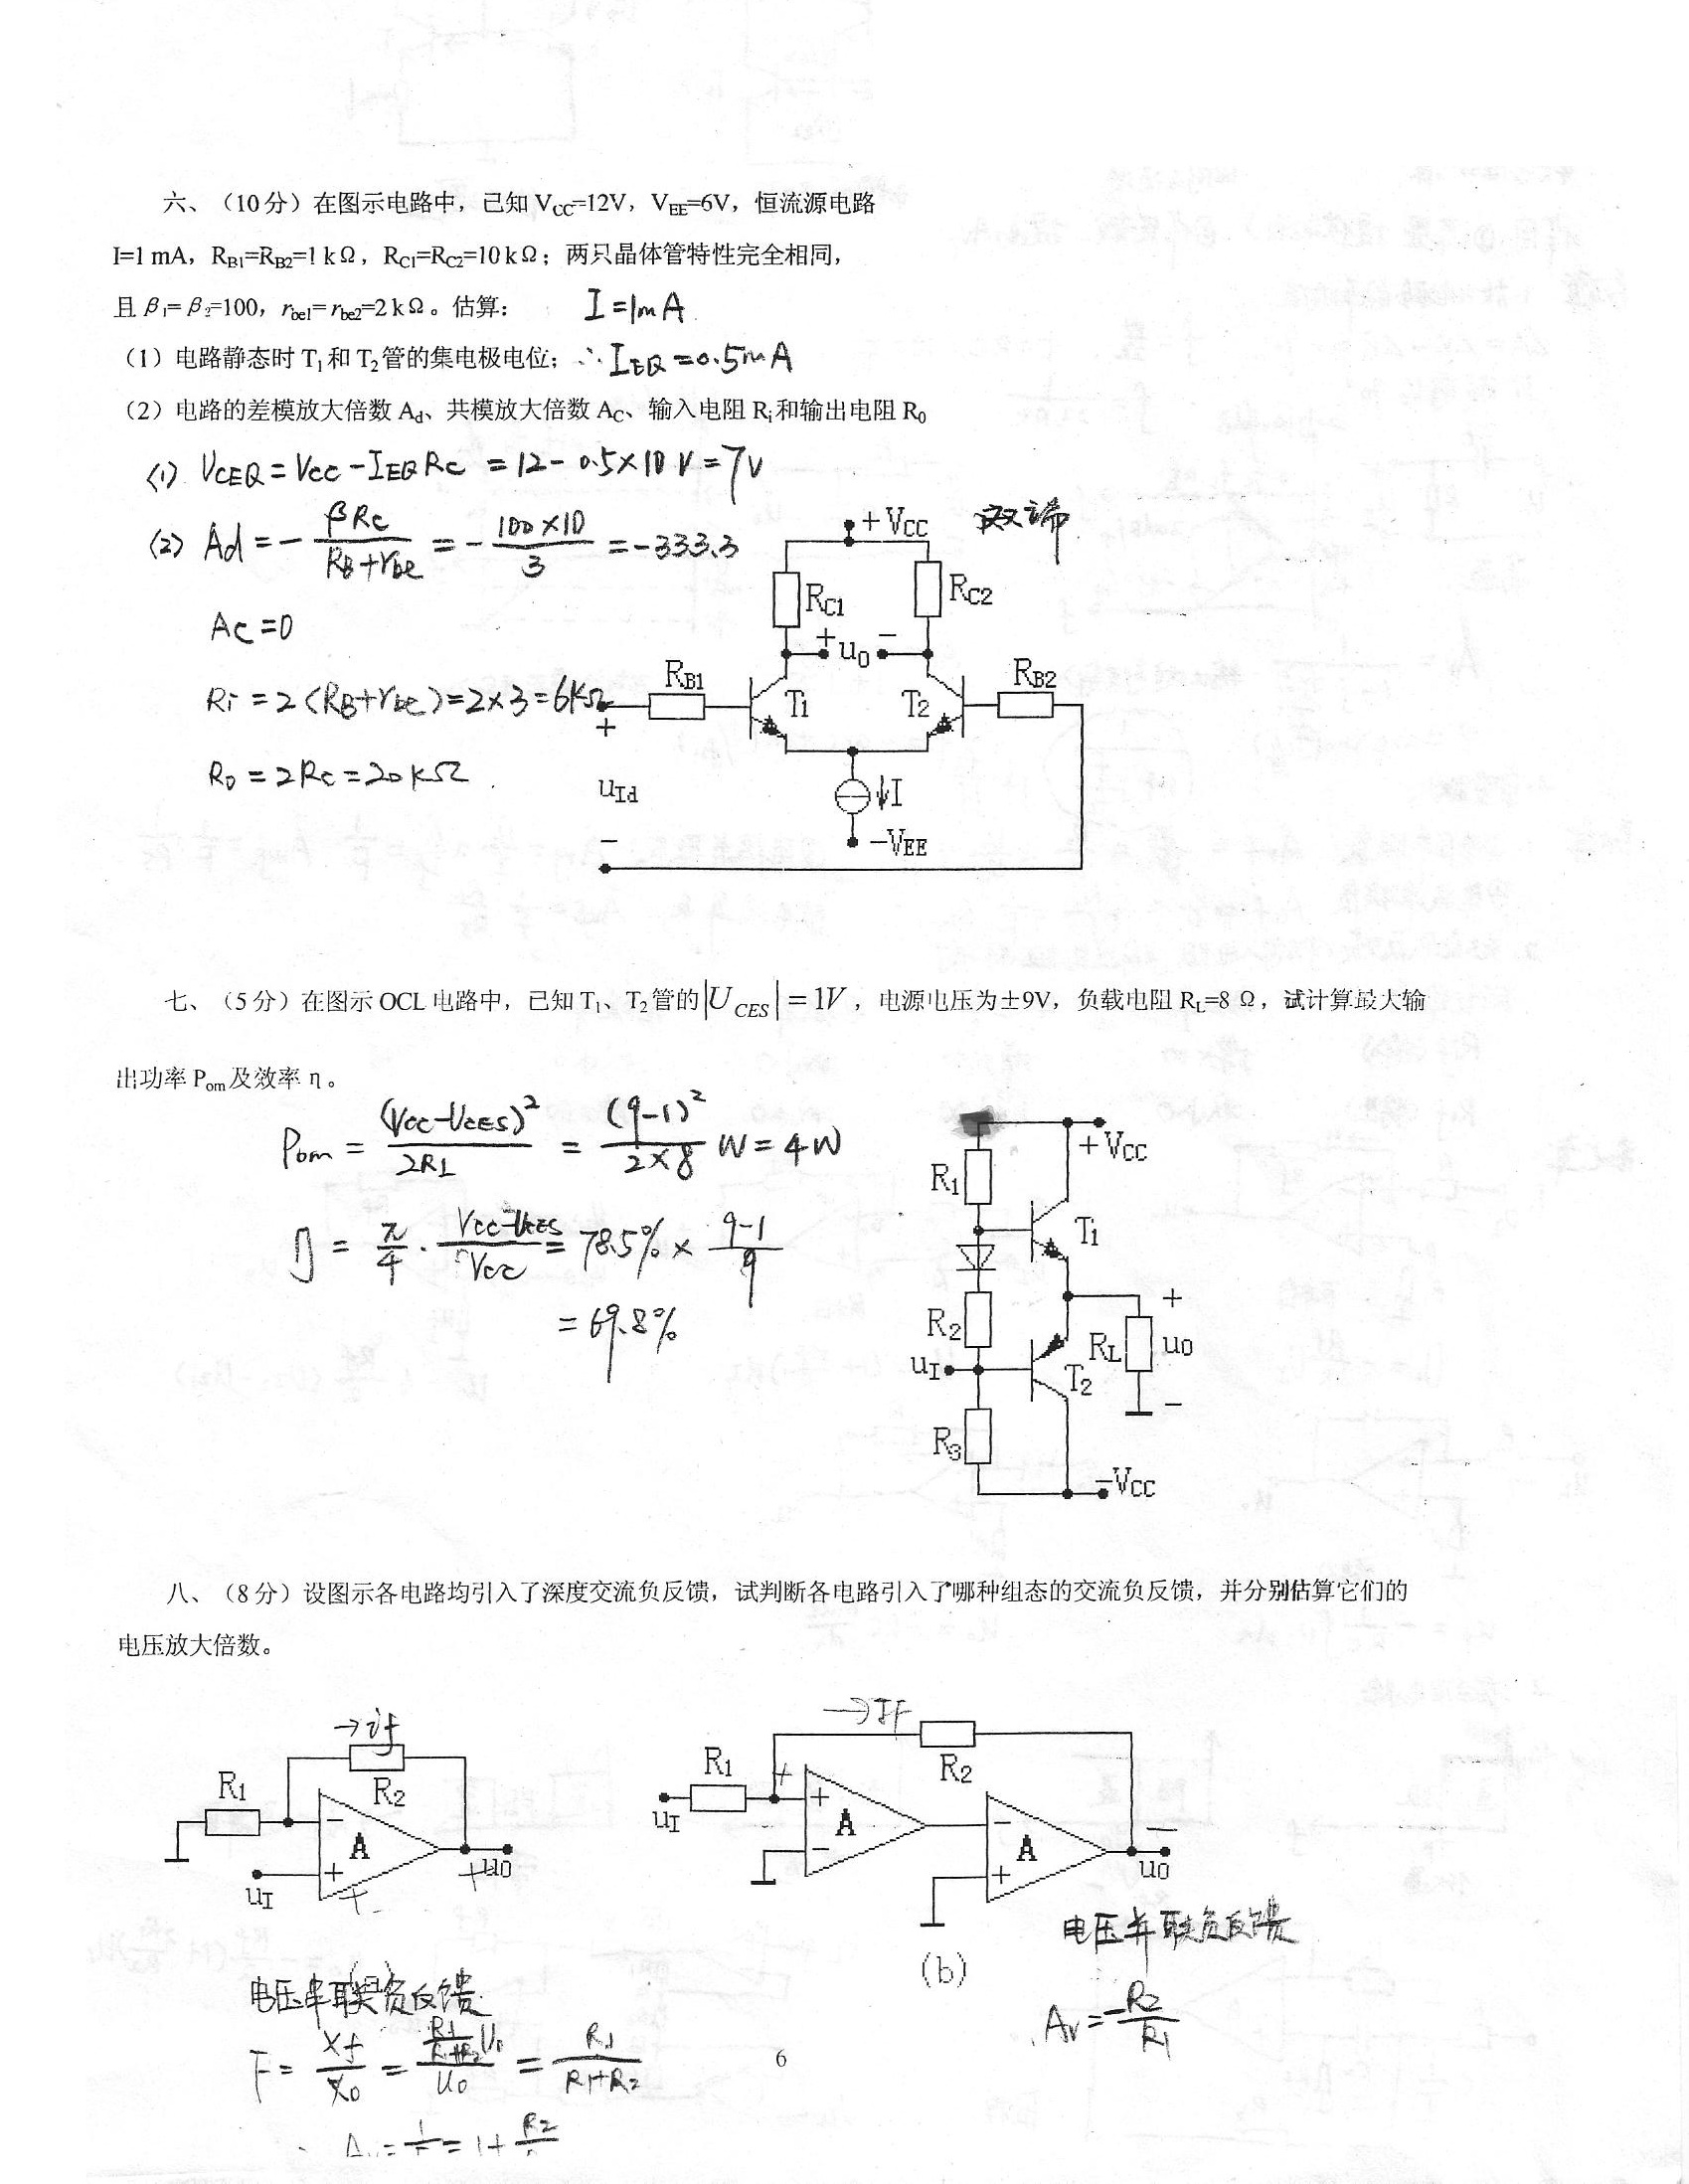 六、（10分）在图示电路中，已知 V_CC=12V，V_EE=6V，恒流源电路
I=1 mA，R_B1=R_B2=1 kΩ，R_C1=R_C2=10 kΩ；两只晶体管特性完全相同，
且 β₁= β₂=100，r_be1= r_be2=2 kΩ。估算：
I=1mA
（1）电路静态时 T₁ 和 T₂ 管的集电极电位；
∴I_EQ=0.5mA
（2）电路的差模放大倍数 A_d、共模放大倍数 A_C、输入电阻 R_i 和输出电阻 R_0
(1) U_CEQ = V_CC - I_EQ R_C = 12 - 0.5×10 V = 7V
(2) Ad = - βRc/(R_B+r_be) = - 100×10/3 = -333.3
Ac=0
Ri = 2(R_B+r_be)=2×3=6kΩ
Ro = 2Rc = 20kΩ
双端
+V_CC
R_C1
R_C2
+ u_0 -
R_B1
R_B2
T₁
T₂
+
u_Id
-
I
-V_EE
七、（5分）在图示 OCL 电路中，已知 T₁、T₂ 管的|U_CES|=1V，电源电压为±9V，负载电阻 R_L=8 Ω，试计算最大输
出功率 P_om 及效率 η。
P_om = (V_CC-U_CES)²/2R_L = (9-1)²/2×8 W = 4W
η = π/4 · V_CC-U_CES/V_CC = 78.5% × 9-1/9
= 69.8%
+V_CC
R₁
T₁
R₂
+
R_L
u_0
u_I
T₂
-
R₃
-V_CC
八、（8分）设图示各电路均引入了深度交流负反馈，试判断各电路引入了哪种组态的交流负反馈，并分别估算它们的
电压放大倍数。
→if
R₁
R₂
-
A
+
+
u_I
+
u_0
→If
R₁
R₂
+
+
u_I
A
-
-
A
+
-
u_0
(b)
电压串联负反馈
电压并联负反馈
F = Xf/Xo = (R₁/(R₁+R₂))Uo/Uo = R₁/(R₁+R₂)
Av = -R₂/R₁
6